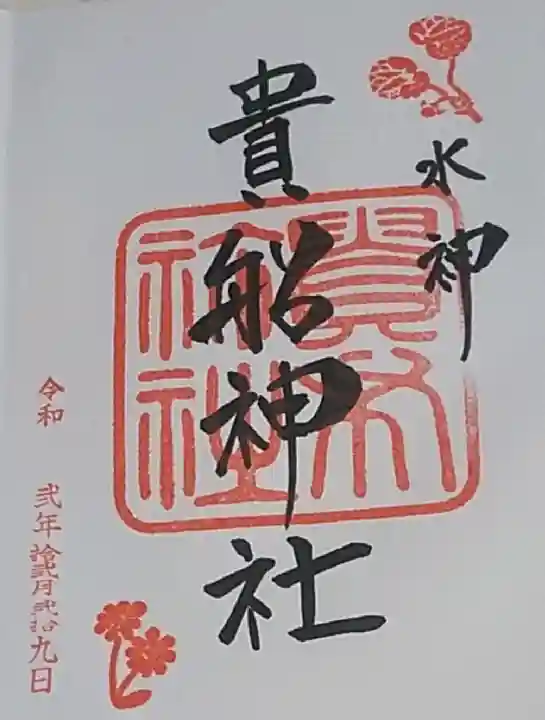 水神
貴船神社
令和 弐年拾弐月弐拾九日